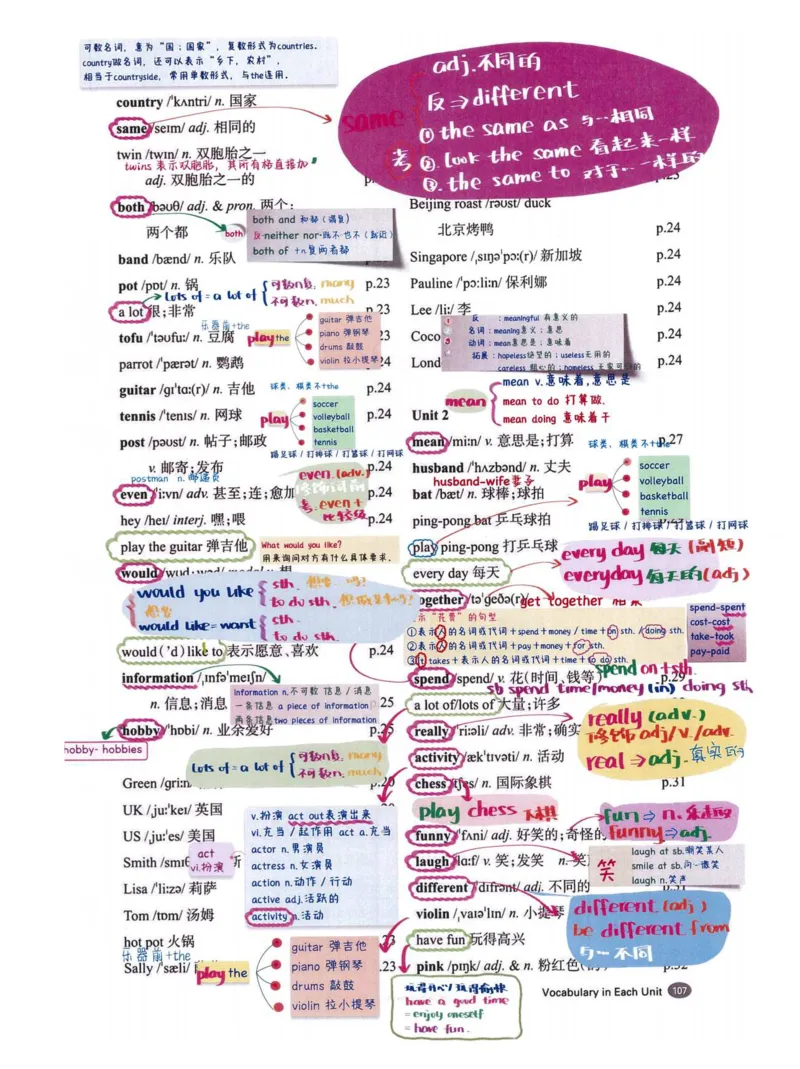 可数名词，意为“国；国家”，复数形式为countries.
country做名词，还可以表示“乡下，农村”，
相当于countryside，常用单数形式，与the连用.
country /ˈkʌntri/ n. 国家
same /seɪm/ adj. 相同的
twin /twɪn/ n. 双胞胎之一
twins 表示双胞胎，其所有格直接加'
adj. 双胞胎之一的
both /bəʊθ/ adj. & pron. 两个；
两个都
both
both and 和都
反 neither nor 既不也不
both of +n复两者都
band /bænd/ n. 乐队
pot /pɒt/ n. 锅 p.23
Lots of = a lot of
可数n复, many
不可数n. much
a lot 很；非常 p.23
乐器前+the
tofu /ˈtəʊfuː/ n. 豆腐
play the
guitar 弹吉他
piano 弹钢琴
drums 敲鼓
violin 拉小提琴
parrot /ˈpærət/ n. 鹦鹉
guitar /ɡɪˈtɑː(r)/ n. 吉他 p.24
球类、棋类不+the
tennis /ˈtenɪs/ n. 网球 p.24
play
soccer
volleyball
basketball
tennis
post /pəʊst/ n. 帖子；邮政
踢足球 / 打排球 / 打篮球 / 打网球
v. 邮寄；发布 p.24
postman n. 邮递员
even /ˈiːvn/ adv. 甚至；连；愈加 p.24
even (adv.)
修饰词前
考. even +
比较级
hey /heɪ/ interj. 嘿；喂 p.24
play the guitar 弹吉他
What would you like?
用来询问对方有什么具体要求.
would
would you like
sth.
to do sth.
would like = want
sth.
to do sth.
would ('d) like to 表示愿意、喜欢 p.24
information /ˌɪnfəˈmeɪʃn/
n. 信息；消息 p.25
information n.不可数 信息 / 消息
一条信息 a piece of information
两条信息two pieces of information
hobby /ˈhɒbi/ n. 业余爱好 p.25
hobby- hobbies
Lots of = a lot of
可数n复, many
不可数n. much
Green
UK /ˌjuːˈkeɪ/ 英国
US /ˌjuːˈes/ 美国
Smith
act
vi.扮演
v.扮演 act out表演出来
vi.充当 / 起作用 act a.充当
actor n.男演员
actress n.女演员
action n.动作 / 行动
active adj.活跃的
activity n.活动
Lisa /ˈliːzə/ 莉萨
Tom /tɒm/ 汤姆
hot pot 火锅
乐器前+the
Sally /ˈsæli/
play the
guitar 弹吉他
piano 弹钢琴
drums 敲鼓
violin 拉小提琴
same
adj.不同的
反⇒different
考
① the same as 与…相同
②. look the same 看起来一样
③. the same to 对于…一样的
Beijing roast /rəʊst/ duck
北京烤鸭 p.24
Singapore /ˌsɪŋəˈpɔː(r)/ 新加坡 p.24
Pauline /ˈpɔːliːn/ 保利娜 p.24
Lee /liː/ 李 p.24
Coco p.24
Lond p.24
反 : meaningful 有意义的
名词 : meaning意义；意思
动词 : mean意思是；意味着
拓展 : hopeless绝望的；useless无用的
careless 粗心的；homeless 无家可归的
Unit 2
mean
mean v.意味着,意思是
mean to do 打算做.
mean doing 意味着干
mean /miːn/ v. 意思是；打算 p.27
球类、棋类不+the
husband /ˈhʌzbənd/ n. 丈夫
husband-wife妻子
bat /bæt/ n. 球棒；球拍
play
soccer
volleyball
basketball
tennis
踢足球 / 打排球 / 打篮球 / 打网球
ping-pong bat 乒乓球拍
play ping-pong 打乒乓球
every day 每天
every day 每天 (副短)
everyday 每天的(adj)
together /təˈɡeðə(r)/
get together 相聚
表示“花费”的句型
①表示人的名词或代词+spend+money / time+on sth. / doing sth.
②表示人的名词或代词+pay+money+for sth.
③It takes+表示人的名词或代词+time+to do sth.
spend-spent
cost-cost
take-took
pay-paid
spend /spend/ v. 花(时间、钱等) p.29
spend on +sth.
sb spend time/money (in) doing sth
a lot of/lots of 大量；许多
really /ˈriːəli/ adv. 非常；确实
really (adv.)
修饰adj/v./adv.
real ⇒ adj. 真实的
activity /ækˈtɪvəti/ n. 活动
chess /tʃes/ n. 国际象棋 p.31
play chess 下棋
funny /ˈfʌni/ adj. 好笑的；奇怪的
fun ⇒ n. 乐趣
funny ⇒ adj.
laugh /lɑːf/ v. 笑；发笑 n. 笑
笑
laugh at sb.嘲笑某人
smile at sb.向…微笑
laugh n.笑声
different /ˈdɪfrənt/ adj. 不同的 p.31
violin /ˌvaɪəˈlɪn/ n. 小提琴
different (adj)
be different from
与…不同
have fun 玩得高兴
pink /pɪŋk/ adj. & n. 粉红色 p.32
玩得开心/玩得愉快
have a good time
= enjoy oneself
= have fun.
Vocabulary in Each Unit 107